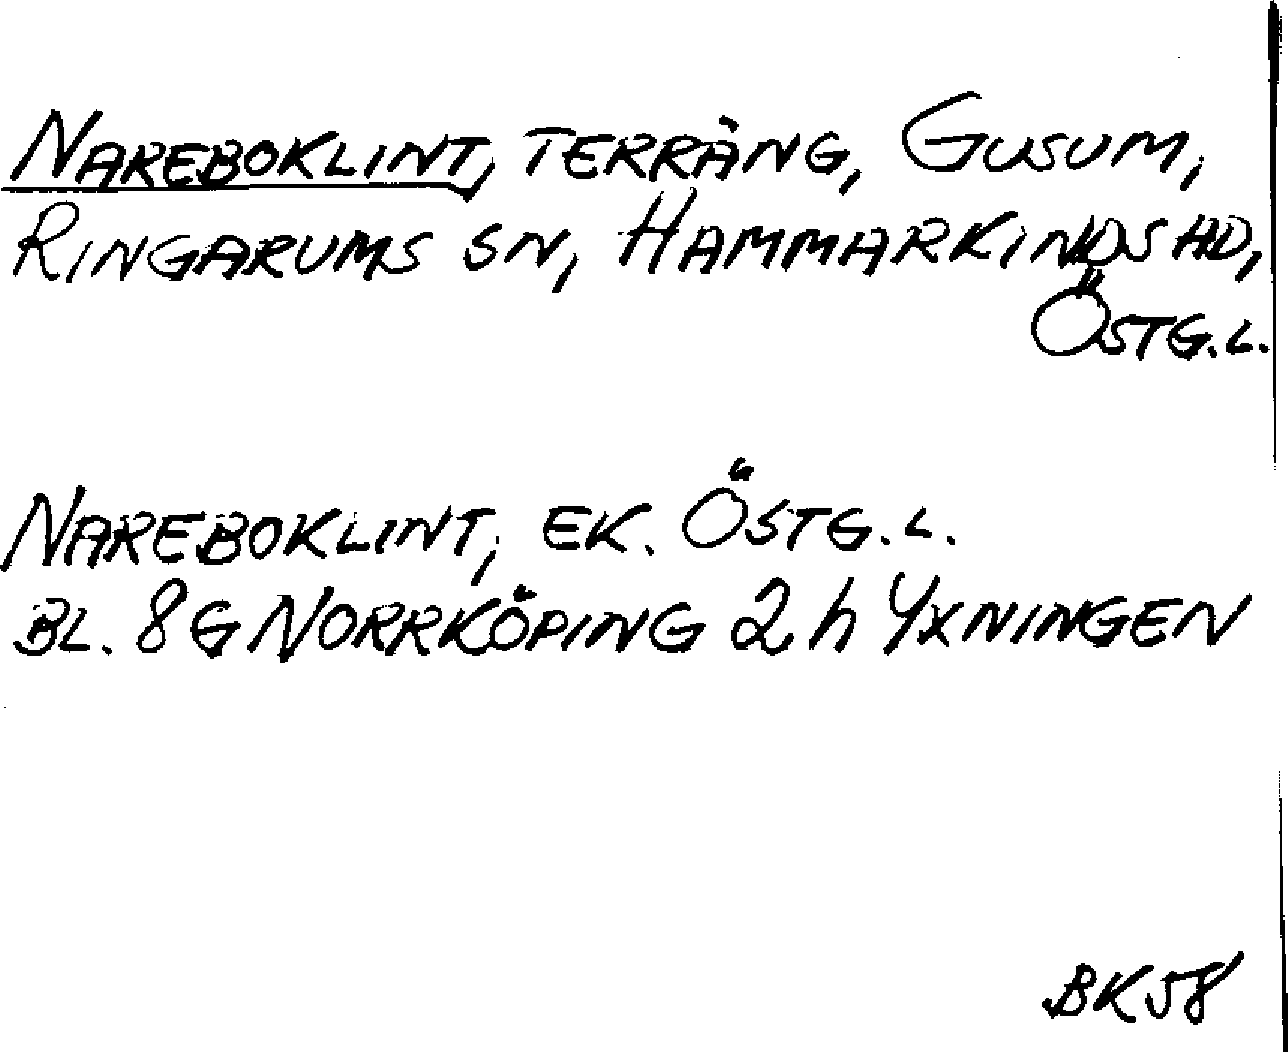 NAREBOKLINT, TERRÄNG, GUSUM,
RINGARUMS SN, HAMMARKINDS HD,
ÖSTG.L.
NAREBOKLINT, EK. ÖSTG.L.
BL. 8G NORRKÖPING 2h YXNINGEN
BK58